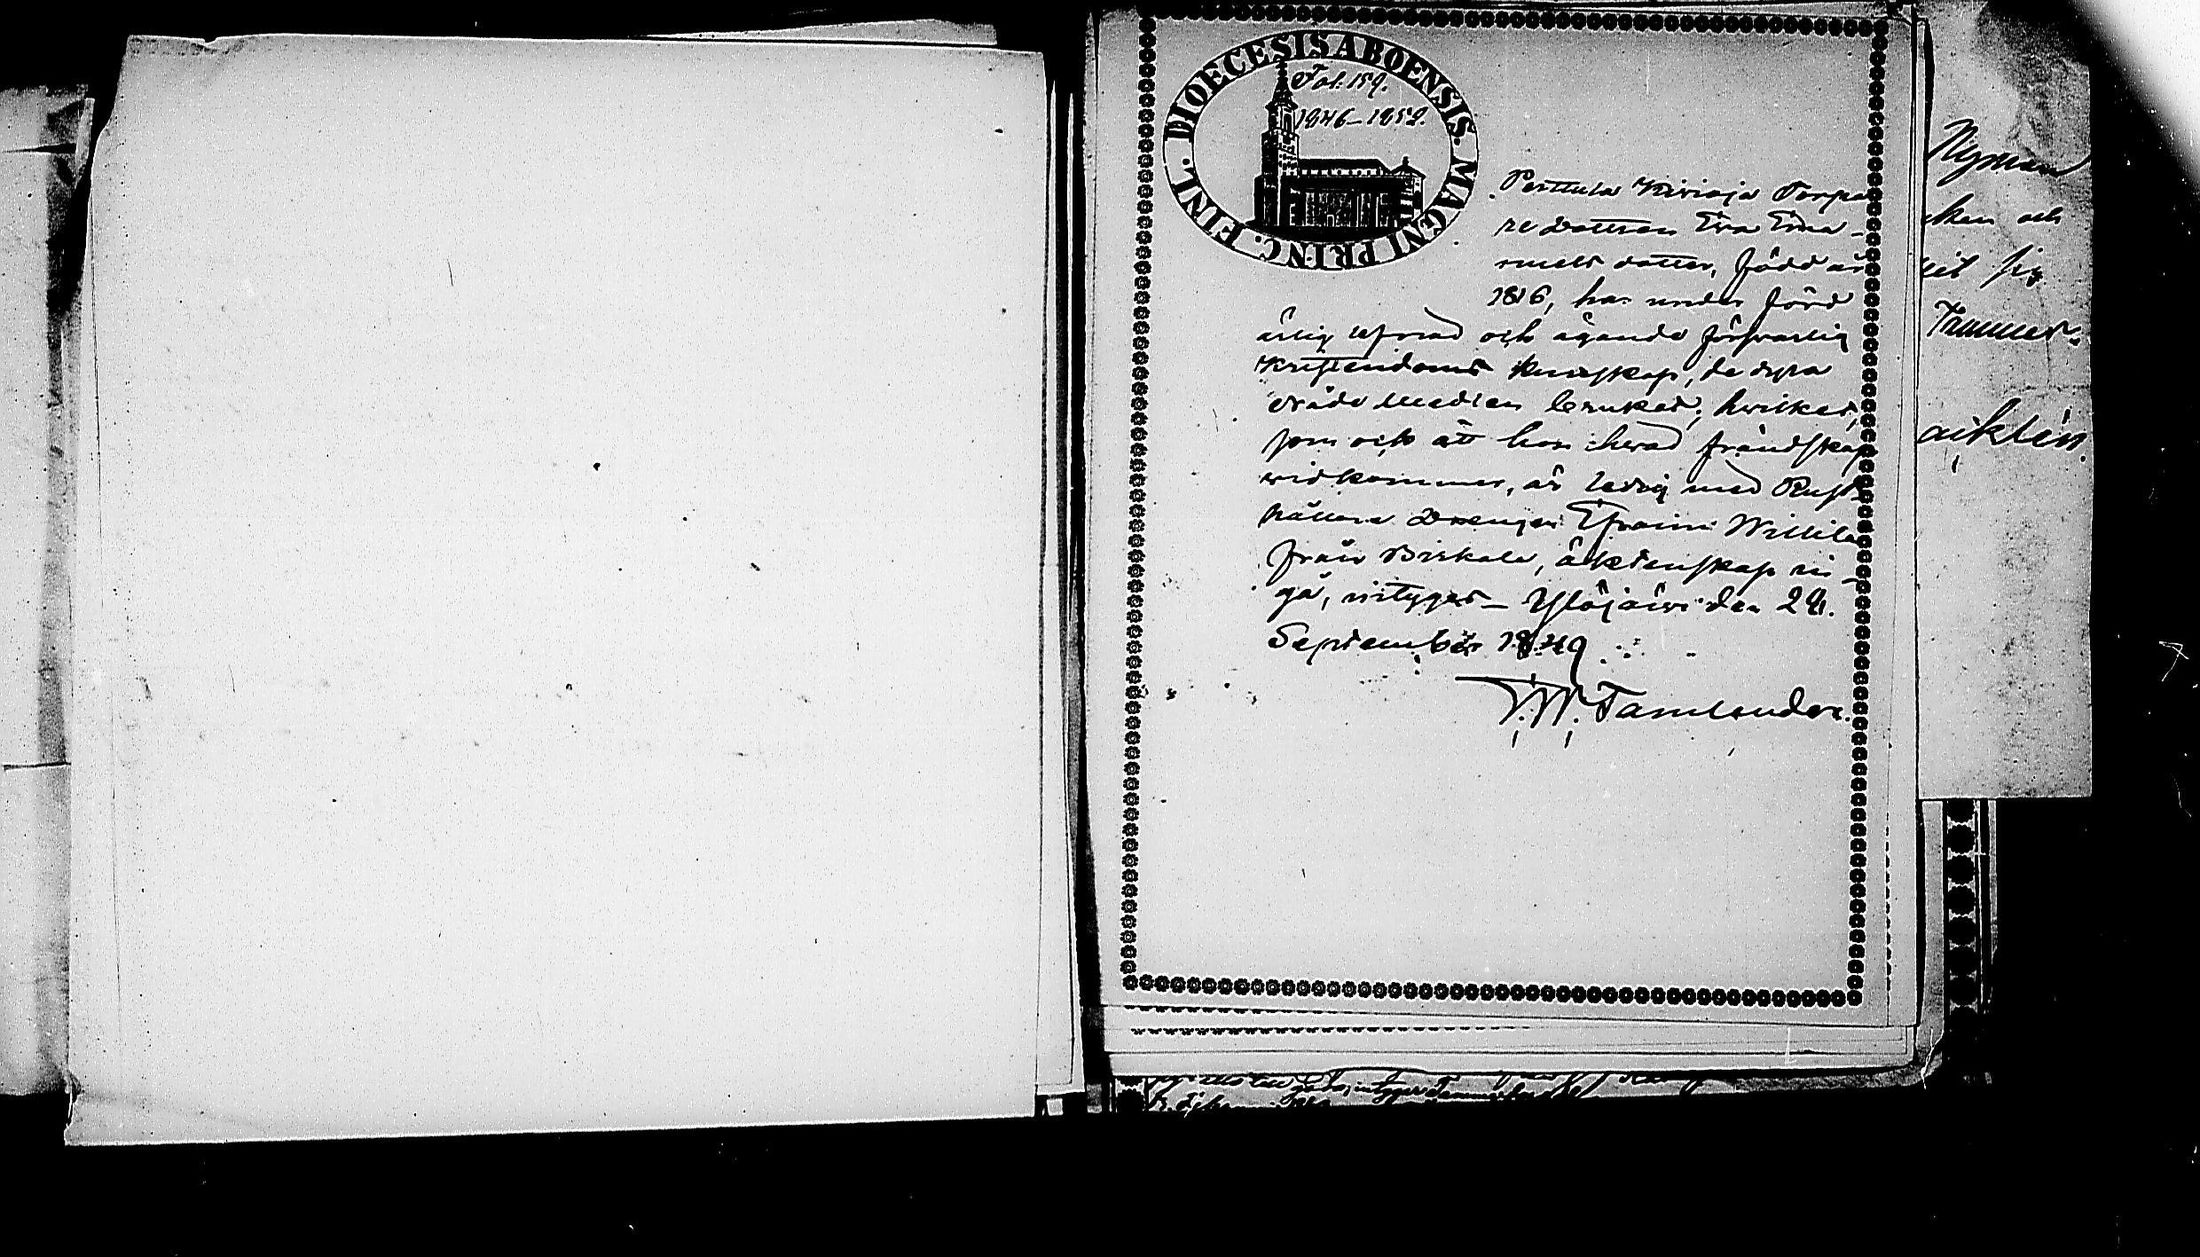 DIOECESIS ABOENSIS. MAGNI PRINC. FINL.
Fol. 159.
1846–1852.
Perttula Kivioja Torpa
re dottren Eva Ema-
nuels dotter, född år
1816, har under förd
ärlig lefnad och ägande förswarlig
Kristendoms kunskap, de dyra
nåde medlen brukat; hwilket,
som ock att hon hwad frändskap
widkommer, är ledig med Rust-
hållare Drengen Efraim Willila
från Birkala, äktenskap in-
gå, intygas – Ylöjärwi den 24.
September 1849
F. W. Tamlander.
Nyman
ken och
sig
Tammer-